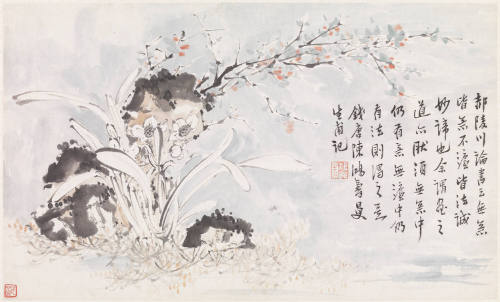 郝陵川論書云無意
皆意不灋皆法誠
妙諦也余謂畫之
道亦肰須無意中
仍有意無灋中仍
有法則得之矣
錢唐陳鴻壽曼
生甫記